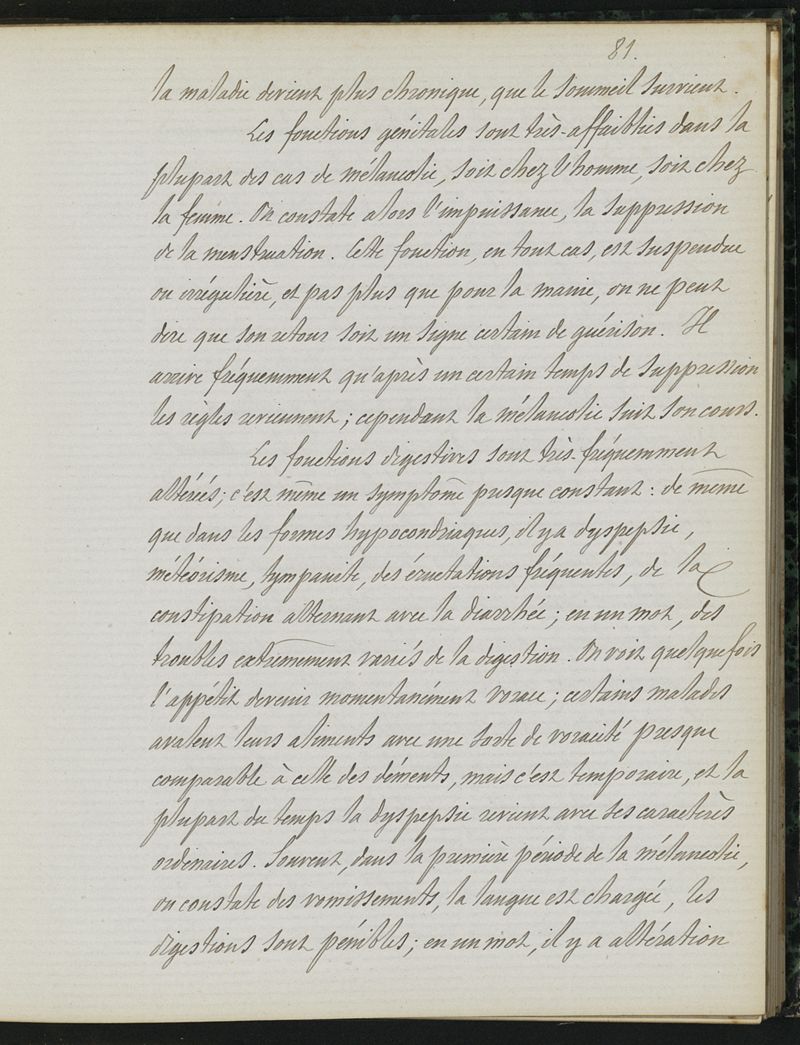 81.
la maladie devient plus chronique, que le sommeil survient.
Les fonctions génitales sont très-affaiblies dans la
plupart des cas de mélancolie, soit chez l'homme, soit chez
la femme. On constate alors l'impuissance, la suppression
de la menstruation. Cette fonction, en tout cas, est suspendue
ou irrégulière, et pas plus que pour la manie, on ne peut
dire que son retour soit un signe certain de guérison. Il
arrive fréquemment qu'après un certain temps de suppression
les règles reviennent ; cependant la mélancolie suit son cours.
Les fonctions digestives sont très-fréquemment
altérées ; c'est même un symptôme presque constant : de même
que dans les formes hypocondriaques, il y a dyspepsie,
météorisme, tympanite, des éructations fréquentes, de la
constipation alternant avec la diarrhée ; en un mot, des
troubles extrêmement variés de la digestion. On voit quelquefois
l'appétit devenir momentanément vorace ; certains malades
avalent leurs aliments avec une sorte de voracité presque
comparable à celle des déments, mais c'est temporaire, et la
plupart du temps la dyspepsie revient avec ses caractères
ordinaires. Souvent, dans la première période de la mélancolie,
on constate des vomissements, la langue est chargée, les
digestions sont pénibles ; en un mot, il y a altération